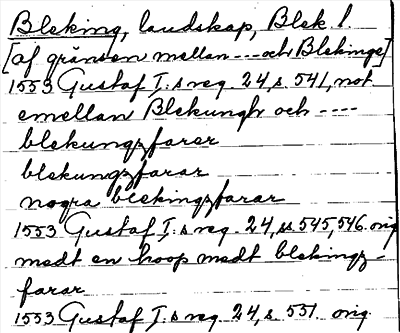 Bleking, landskap, Blek. l.
[af gränsen mellan --- och Blekinge]
1553 Gustaf I.s reg. 24, s. 541, not
emellan Blekungh och ----
blekungzfarer
blekungzfarar
nogra blekingzfarar
1553 Gustaf I.s reg. 24, ss. 545, 546. orig
medt en hoop medt blekingz-
farar
1553 Gustaf I.s reg. 24, s. 551. orig.